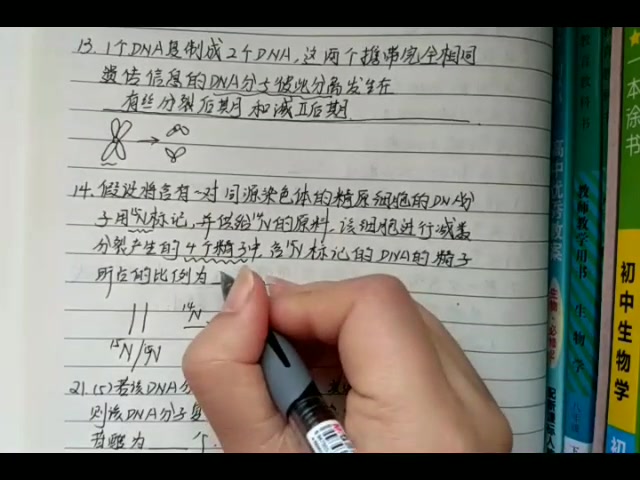 13. 1个DNA复制成2个DNA,这两个携带完全相同
遗传信息的DNA分子彼此分离发生在
有丝分裂后期和减Ⅱ后期
14. 假设将含有一对同源染色体的精原细胞的DNA分
子用¹⁵N标记,并供给¹⁴N的原料,该细胞进行减数
分裂产生的4个精子中,含¹⁵N标记的DNA的精子
所占的比例为
¹⁴N
¹⁵N/¹⁵N
21. (5)若该DNA分
则该DNA分子复
苷酸为____个.
教师教学用书
生物学
高中优秀教案
生物·必修
配人教
一本涂书
初中生物学
初